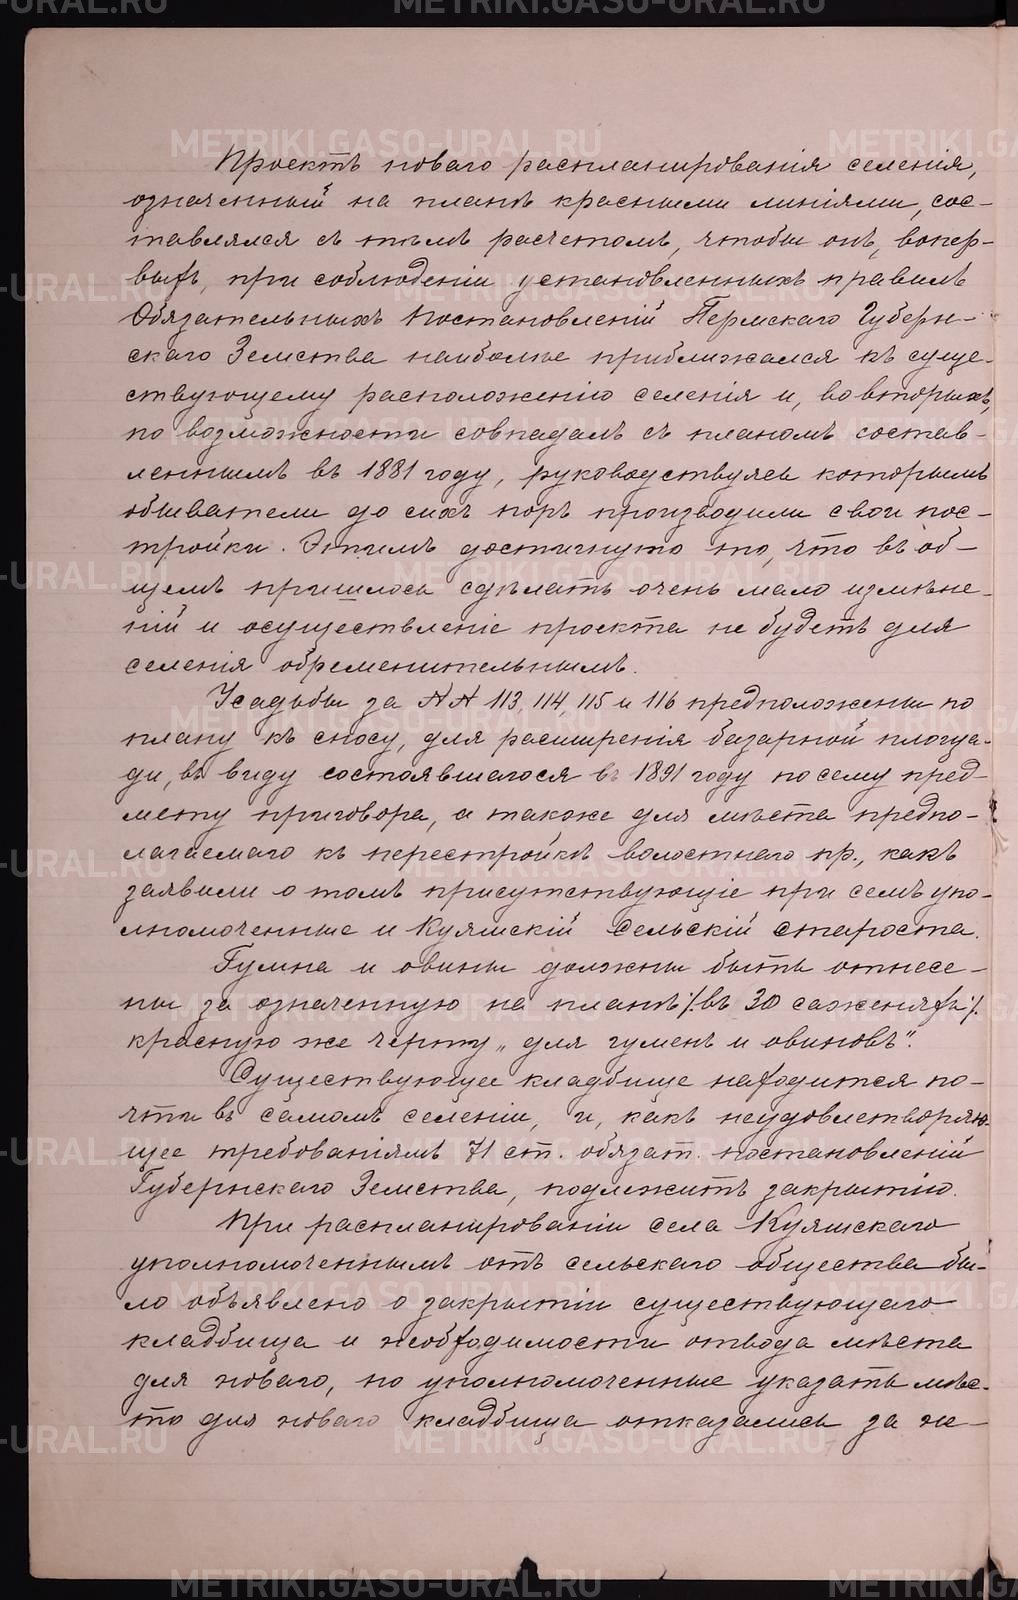 Проектъ новаго распланированія селенія,
означенный на планѣ красными линіями, сос-
тавлялся съ тѣмъ расчетомъ, чтобы онъ, вопер-
выхъ, при соблюденіи установленныхъ правилъ
Обязательныхъ Постановленій Пермскаго Губерн-
скаго Земства наиболѣе приближался къ суще-
ствующему расположенію селенія и, вовторыхъ,
по возможности совпадалъ съ планомъ состав-
леннымъ въ 1881 году, руководствуясь которымъ
обыватели до сихъ поръ производили свои пос-
тройки. Этимъ достигнуто то, что въ об-
щемъ пришлось сдѣлать очень мало измѣне-
ній и осуществленіе проекта не будетъ для
селенія обременительнымъ.
Усадьбы за №№ 113, 114, 115 и 116 предположены по
плану къ сносу, для расширенія базарной площа-
ди, въ виду состоявшагося въ 1891 году по сему пред-
мету приговора, а также для мѣста предпо-
лагаемаго къ перестройкѣ волостнаго пр., какъ
заявили о томъ присутствующіе при семъ упо-
лномоченные и Куяшскій Сельскій староста.
Гумна и овины должны быть отнесе-
ны за означенную на планѣ /:въ 30 саженяхъ:/
красную же черту „для гуменъ и овиновъ".
Существующее кладбище находится по-
чти въ самомъ селеніи, и, какъ неудовлетворяю-
щее требованіямъ 71 ст. обязат. постановленій
Губернскаго Земства, подлежитъ закрытію.
При распланированіи села Куяшскаго
уполномоченнымъ отъ сельскаго общества бы-
ло объявлено о закрытіи существующаго
кладбища и необходимости отвода мѣста
для новаго, но уполномоченные указать мѣс-
то для новаго кладбища отказались за не-
METRIKI.GASO-URAL.RU